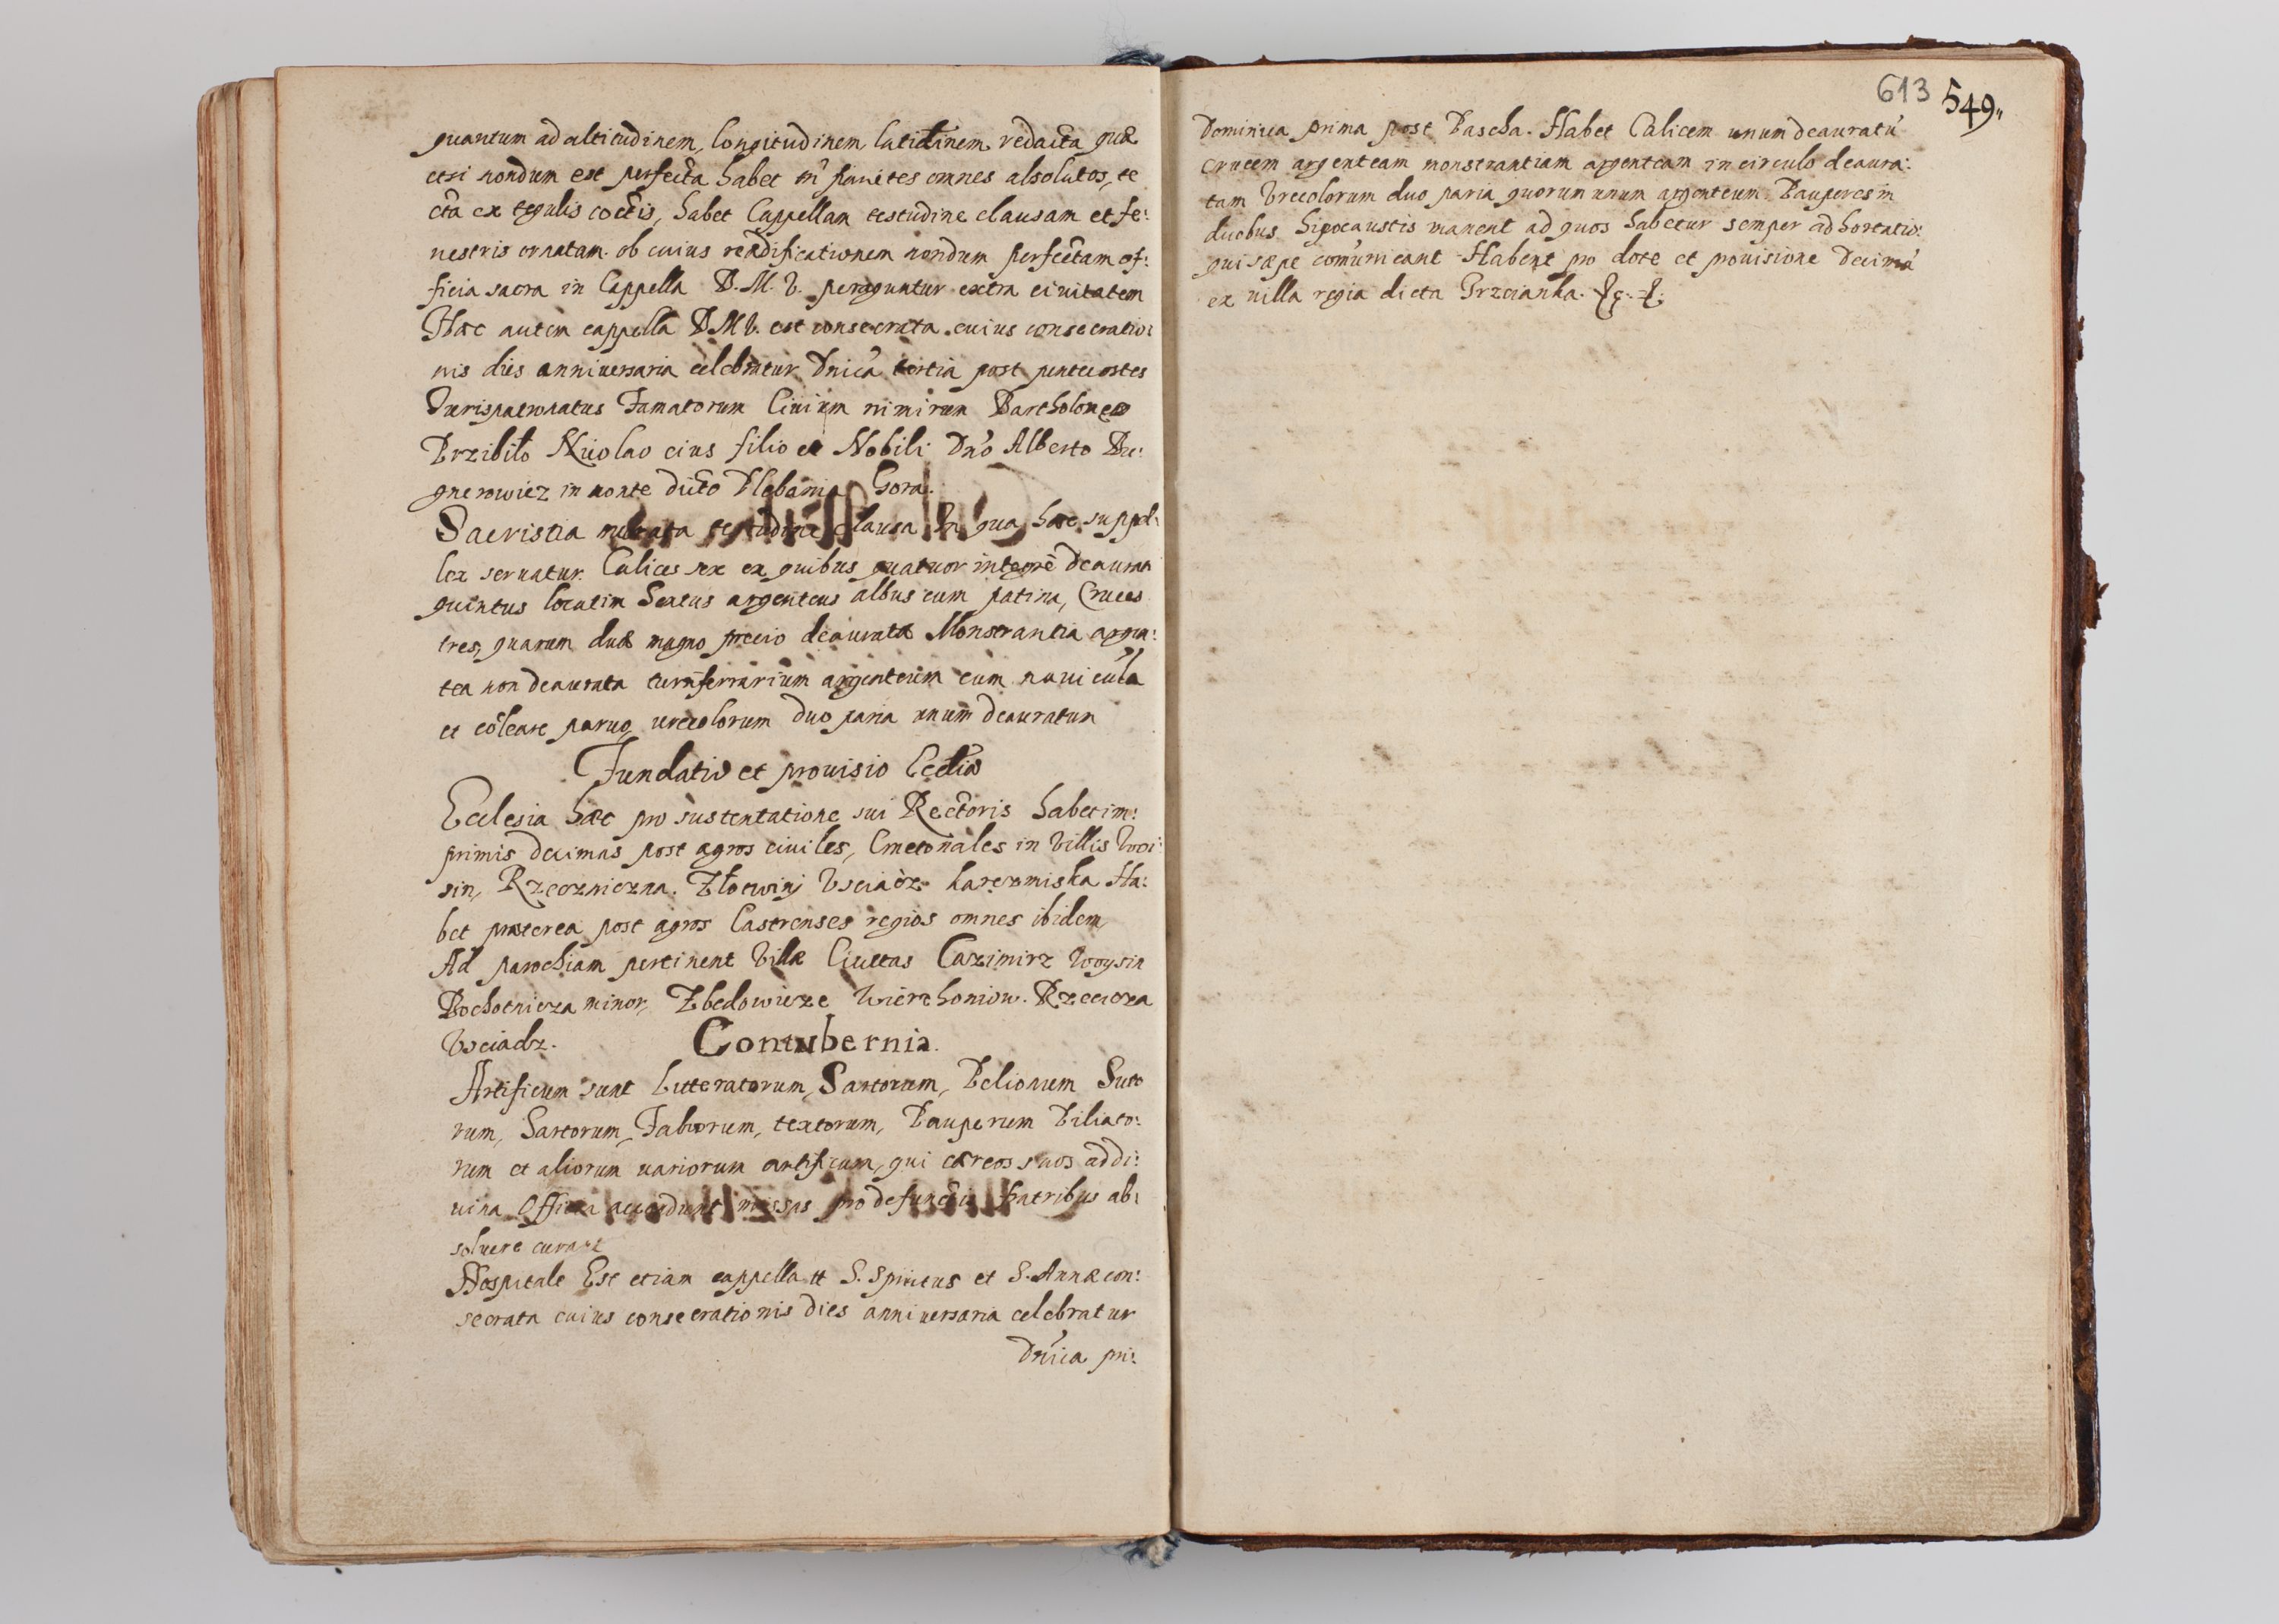 quantum ad altitudinem, longitudinem latitudinem redacta quæ
etsi nondum est perfecta habet tn̄ parietes omnes absolutos, te
cta ex tegulis coctis, habet Cappellam testudine clausam et fe:
nestris ornatam. ob cuius reædificationem nondum perfectam of:
ficia sacra in Cappella B. M. V. peraguntur extra ciuitatem
Hæc autem cappella B.M V. est consecrata cuius consecratio:
nis dies anniuersaria celebratur Dnicá tertia post pentecostes
Iurispatronatus Famatorum Ciuium nimirum Bartholomeo
Przibiło Nicolao eius filio et Nobili Dnó Alberto
in monte dicto Plebania Gora.
Sacristia murata testudine clausa In qua hæc suppel:
lex seruatur. Calices sex ex quibus quatuor integrè deaurati
quintus locatim Sextus argenteus albus cum patina, Cruces
tres, quarum duæ magno precio deauratæ Monstrantia argen:
tea non deaurata turriferrarium argenteum cum nauicula
et cócleare paruo, urceolorum duo paria unum deauratum
Fundatio et prouisio Ecclíæ
Ecclesia hæc pro sustentatione sui Rectoris habet im:
primis decimas post agros ciuiles, Cmetonales in Villis Woi:
sin, Rzeczniczna. Zbotwinj Vsciàdz. karczmiska Ha:
bet præterea post agros Castrenses regios omnes ibidem,
Ad parochiam pertinent Villæ Ciuitas Cazimirz Woysin
Bochotnicza minor, Zbedowicze Wierzchoniow. Rzeczicza
Vsciadz. Contubernia.
Artificum sunt Litteratorum, Sartorum, Pelionum Suto
rum, Sartorum, Fabrorum, textorum, Pauperum Piliato:
rum et aliorum uariorum artificum, qui cereos suos ad di:
uina Officia accendunt missas pro defunctis fratribus ab:
soluere curant
Hospitale Est etiam cappella tt S. Spiritus et S. Annæ con:
secrata cuius consecrationis dies anniuersaria celebratur
Dnica pri:
613 549.
Dominica prima post Pascha. Habet Calicem unum deauratū
Crucem argenteam monstrantiam argenteam in circulo deaura:
tam Vrceolorum duo paria quorum unum argenteum. Pauperes in
duobus hipocaustis manent ad quos habetur semper adhortatio:
qui sæpe comúnicant Habent pro dote et prouisione Decimā
ex uilla regia dicta Brzcianka.